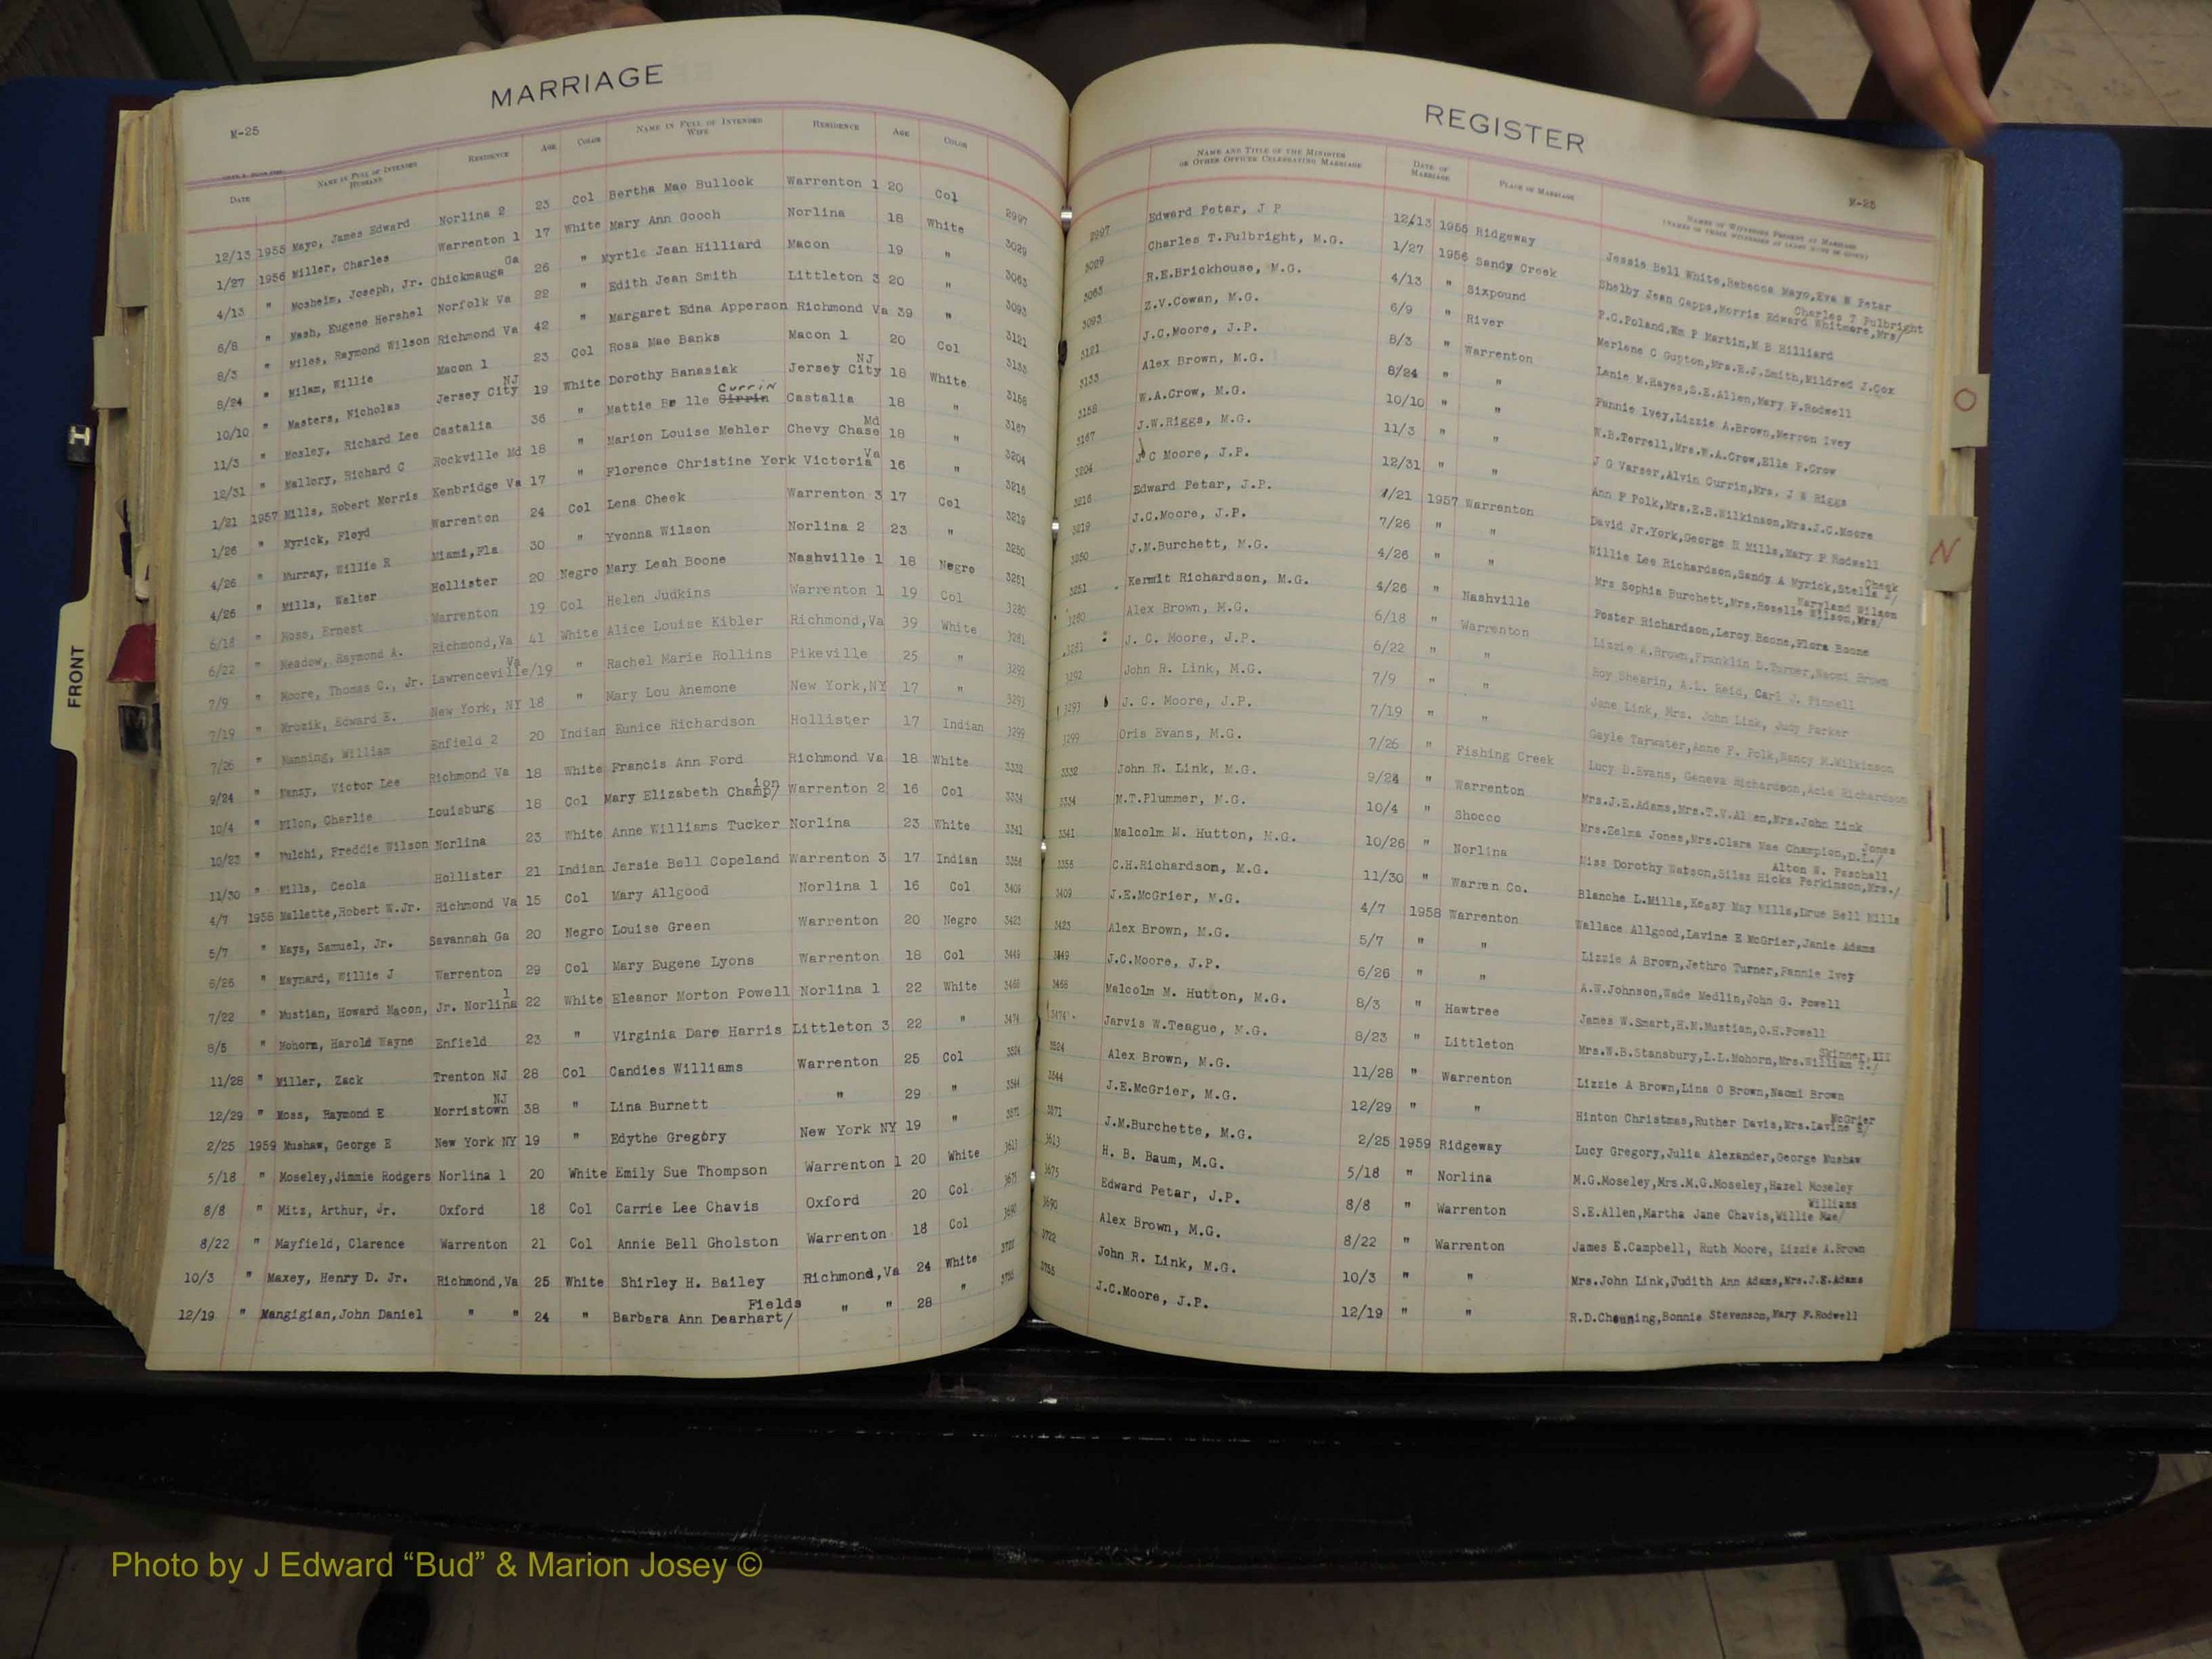 MARRIAGE
M-25
DATE NAME IN FULL OF INTENDED HUSBAND RESIDENCE AGE COLOR NAME IN FULL OF INTENDED WIFE RESIDENCE AGE COLOR
12/13 1955 Mayo, James Edward Norlina 2 23 Col Bertha Mae Bullock Warrenton 1 20 Col 2997
1/27 1956 Miller, Charles Warrenton 1 17 White Mary Ann Gooch Norlina 18 White 3029
4/13 " Mosheim, Joseph, Jr. Chickmauga Ga 26 " Myrtle Jean Hilliard Macon 19 " 3063
6/8 " Mash, Eugene Hershel Norfolk Va 22 " Edith Jean Smith Littleton 3 20 " 3093
8/3 " Miles, Raymond Wilson Richmond Va 42 " Margaret Edna Apperson Richmond Va 39 " 3121
8/24 " Milam, Willie Macon 1 23 Col Rosa Mae Banks Macon 1 20 Col 3133
10/10 " Masters, Nicholas Jersey City NJ 19 White Dorothy Banasiak Jersey City NJ 18 White 3158
11/3 " Mosley, Richard Lee Castalia 36 " Mattie Be lle Currin Castalia 18 " 3167
12/31 " Mallory, Richard C Rockville Md 18 " Marion Louise Mehler Chevy Chase Md 18 " 3204
1/21 1957 Mills, Robert Morris Kenbridge Va 17 " Florence Christine York Victoria Va 16 " 3216
1/26 " Myrick, Floyd Warrenton 24 Col Lena Cheek Warrenton 3 17 Col 3219
4/26 " Murray, Willie R Miami,Fla 30 " Yvonna Wilson Norlina 2 23 " 3250
4/26 " Mills, Walter Hollister 20 Negro Mary Leah Boone Nashville 1 18 Negro 3251
6/18 " Moss, Ernest Warrenton 19 Col Helen Judkins Warrenton 1 19 Col 3280
6/22 " Meadow, Raymond A. Richmond,Va 41 White Alice Louise Kibler Richmond,Va 39 White 3281
7/9 " Moore, Thomas C., Jr. Lawrenceville/Va 19 " Rachel Marie Rollins Pikeville 25 " 3292
7/19 " Mrozik, Edward E. New York, NY 18 " Mary Lou Anemone New York,NY 17 " 3293
7/26 " Manning, William Enfield 2 20 Indian Eunice Richardson Hollister 17 Indian 3299
9/24 " Manzy, Victor Lee Richmond Va 18 White Francis Ann Ford Richmond Va 18 White 3332
10/4 " Milon, Charlie Louisburg 18 Col Mary Elizabeth Champ/ion Warrenton 2 16 Col 3334
10/23 " Mulchi, Freddie Wilson Norlina 23 White Anne Williams Tucker Norlina 23 White 3341
11/30 " Mills, Ceola Hollister 21 Indian Jersie Bell Copeland Warrenton 3 17 Indian 3356
4/7 1958 Mallette,Robert W.Jr. Richmond Va 15 Col Mary Allgood Norlina 1 16 Col 3409
5/7 " Mays, Samuel, Jr. Savannah Ga 20 Negro Louise Green Warrenton 20 Negro 3423
6/26 " Maynard, Willie J Warrenton 29 Col Mary Eugene Lyons Warrenton 18 Col 3449
7/22 " Mustian, Howard Macon, Jr. Norlina 1 22 White Eleanor Morton Powell Norlina 1 22 White 3466
8/5 " Mohorn, Harold Wayne Enfield 23 " Virginia Dare Harris Littleton 3 22 " 3474
11/28 " Miller, Zack Trenton NJ 28 Col Candies Williams Warrenton 25 Col 3524
12/29 " Moss, Raymond E Morristown NJ 38 " Lina Burnett " 29 " 3544
2/25 1959 Mushaw, George E New York NY 19 " Edythe Gregory New York NY 19 " 3571
5/18 " Moseley,Jimmie Rodgers Norlina 1 20 White Emily Sue Thompson Warrenton 1 20 White 3613
8/8 " Mitz, Arthur, Jr. Oxford 18 Col Carrie Lee Chavis Oxford 20 Col 3675
8/22 " Mayfield, Clarence Warrenton 21 Col Annie Bell Gholston Warrenton 18 Col 3690
10/3 " Maxey, Henry D. Jr. Richmond,Va 25 White Shirley H. Bailey Richmond,Va 24 White 3722
12/19 " Mangigian,John Daniel " " 24 " Barbara Ann Dearhart/Fields " " 28 " 3755
REGISTER
M-25
NAME AND TITLE OF THE MINISTER OR OTHER OFFICER CELEBRATING MARRIAGE DATE OF MARRIAGE PLACE OF MARRIAGE NAMES OF WITNESSES PRESENT AT MARRIAGE
2997 Edward Petar, J P 12/13 1955 Ridgeway Jessie Bell White,Rebecca Mayo,Eva W Petar
3029 Charles T.Fulbright, M.G. 1/27 1956 Sandy Creek Shelby Jean Capps,Morris Edward Whitmore,Mrs/Charles T Fulbright
3063 R.E.Brickhouse, M.G. 4/13 " Sixpound P.C.Poland,Wm P Martin,M B Hilliard
3093 Z.V.Cowan, M.G. 6/9 " River Merlene C Gupton,Mrs.R.J.Smith,Mildred J.Cox
3121 J.C.Moore, J.P. 8/3 " Warrenton Lenie M.Hayes,S.E.Allen,Mary F.Rodwell
3133 Alex Brown, M.G. 8/24 " " Fannie Ivey,Lizzie A.Brown,Merron Ivey
3158 W.A.Crow, M.G. 10/10 " " W.B.Terrell,Mrs.W.A.Crow,Ella F.Crow
3167 J.W.Riggs, M.G. 11/3 " " J G Varser,Alvin Currin,Mrs. J W Riggs
3204 J C Moore, J.P. 12/31 " " Ann F Polk,Mrs.E.B.Wilkinson,Mrs.J.C.Moore
3216 Edward Petar, J.P. 1/21 1957 Warrenton David Jr.York,George R Mills,Mary F Rodwell
3219 J.C.Moore, J.P. 7/26 " " Willie Lee Richardson,Sandy A Myrick,Stella P/Cheek
3250 J.M.Burchett, M.G. 4/26 " " Mrs Sophia Burchett,Mrs.Roselle Wilson,Mrs/Maryland Wilson
3251 Kermit Richardson, M.G. 4/26 " Nashville Foster Richardson,Leroy Boone,Flora Boone
3280 Alex Brown, M.G. 6/18 " Warrenton Lizzie A.Brown,Franklin D.Turner,Naomi Brown
3281 J. C. Moore, J.P. 6/22 " " Roy Shearin, A.L. Reid, Carl J. Pinnell
3292 John R. Link, M.G. 7/9 " " Jane Link, Mrs. John Link, Judy Parker
3293 J. C. Moore, J.P. 7/19 " " Gayle Tarwater,Anne F. Polk,Nancy M.Wilkinson
3299 Oris Evans, M.G. 7/26 " Fishing Creek Lucy B.Evans, Geneva Richardson,Acie Richardson
3332 John R. Link, M.G. 9/24 " Warrenton Mrs.J.E.Adams,Mrs.T.V.Allen,Mrs.John Link
3334 M.T.Plummer, M.G. 10/4 " Shocco Mrs.Zelma Jones,Mrs.Clara Mae Champion,D.L./Jones
3341 Malcolm M. Hutton, M.G. 10/26 " Norlina Miss Dorothy Watson,Silas Hicks Perkinson,Mrs./Alton W. Paschall
3356 C.H.Richardson, M.G. 11/30 " Warren Co. Blanche L.Mills,Kessy May Mills,Drue Bell Mills
3409 J.E.McGrier, M.G. 4/7 1958 Warrenton Wallace Allgood,Lavine E McGrier,Janie Adams
3423 Alex Brown, M.G. 5/7 " " Lizzie A Brown,Jethro Turner,Fannie Ivey
3449 J.C.Moore, J.P. 6/26 " " A.W.Johnson,Wade Medlin,John G. Powell
3466 Malcolm M. Hutton, M.G. 8/3 " Hawtree James W.Smart,H.M.Mustian,O.H.Powell
3474 Jarvis W.Teague, M.G. 8/23 " Littleton Mrs.W.B.Stansbury,L.L.Mohorn,Mrs.William T./Skinner,III
3524 Alex Brown, M.G. 11/28 " Warrenton Lizzie A Brown,Lina O Brown,Naomi Brown
3544 J.E.McGrier, M.G. 12/29 " " Hinton Christmas,Ruther Davis,Mrs.Lavine E/McGrier
3571 J.M.Burchette, M.G. 2/25 1959 Ridgeway Lucy Gregory,Julia Alexander,George Mushaw
3613 H. B. Baum, M.G. 5/18 " Norlina M.G.Moseley,Mrs.M.G.Moseley,Hazel Moseley
3675 Edward Petar, J.P. 8/8 " Warrenton S.E.Allen,Martha Jane Chavis,Willie Mae/Williams
3690 Alex Brown, M.G. 8/22 " Warrenton James E.Campbell, Ruth Moore, Lizzie A.Brown
3722 John R. Link, M.G. 10/3 " " Mrs.John Link,Judith Ann Adams,Mrs.J.E.Adams
3755 J.C.Moore, J.P. 12/19 " " R.D.Chewning,Bonnie Stevenson,Mary F.Rodwell
FRONT
I
O
N
Photo by J Edward “Bud” & Marion Josey ©